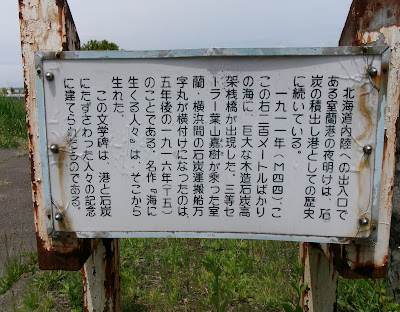 北海道内陸への出入口で
ある室蘭港の夜明けは、石
炭の積出し港としての歴史
に続いている。
一九一一年(M44)、こ
この右二百メートルばかり
の海に、巨大な木造石炭高
架桟橋が出現した。三等セ
ーラー葉山嘉樹が乗った室
蘭・横浜間の石炭運搬船万
字丸が横付けになったのは、
五年後の一九一六年(T5)
のことである。名作『海に
生くる人々』は、そこから
生れた。
この文学碑は、港と石炭
にたずさわった人々の記念
に建てられたものである。